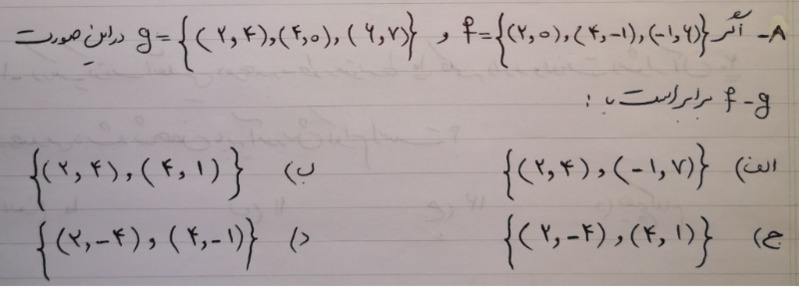 ۸- اگر f={(۲,۰),(۴,-۱),(-۱,۶)} و g={(۲,۴),(۴,۰),(۶,۷)} دراین صورت
f-g برابراست با :
الف) {(۲,۴),(-۱,۷)} ب) {(۲,۴),(۴,۱)}
ج) {(۲,-۴),(۴,۱)} د) {(۲,-۴),(۴,-۱)}